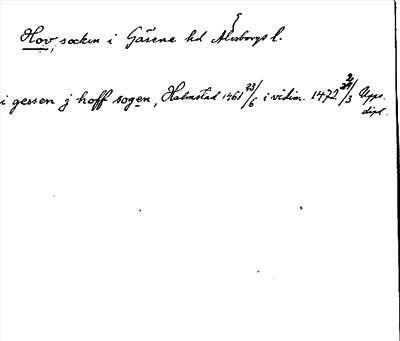 Hov, socken i Gäsene hd Älvsborgs l.
i gessen j hoff sogen, Halmstad 1461 23/6 i vidim. 1472 /3 Upps. dipl.